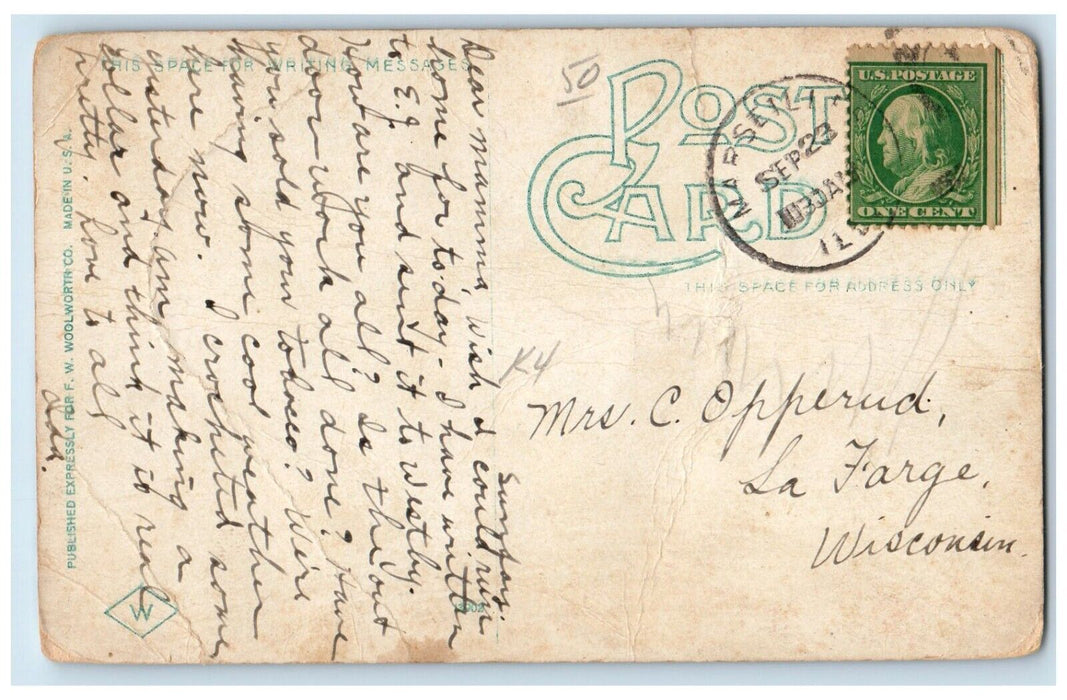 THIS SPACE FOR WRITING MESSAGES
Sunday.
Dear Mamma, Wish I could run
home for to-day - I have written
to E.J. and sent it to Westby.
How are you all? Is the out
door work all done? Have
you sold your tobacco? We're
having some cool weather
here now. I crocheted some
yesterday. Am making a
collar and think it is real
pretty. Love to all
PUBLISHED EXPRESSLY FOR F. W. WOOLWORTH CO. MADE IN U. S. A.
W
50
POST CARD
MARSEILLES
SEP 23
1030AM
ILL
U.S. POSTAGE
ONE CENT
THIS SPACE FOR ADDRESS ONLY
K4
Mrs. C. Opperud,
La Farge,
Wisconsin.